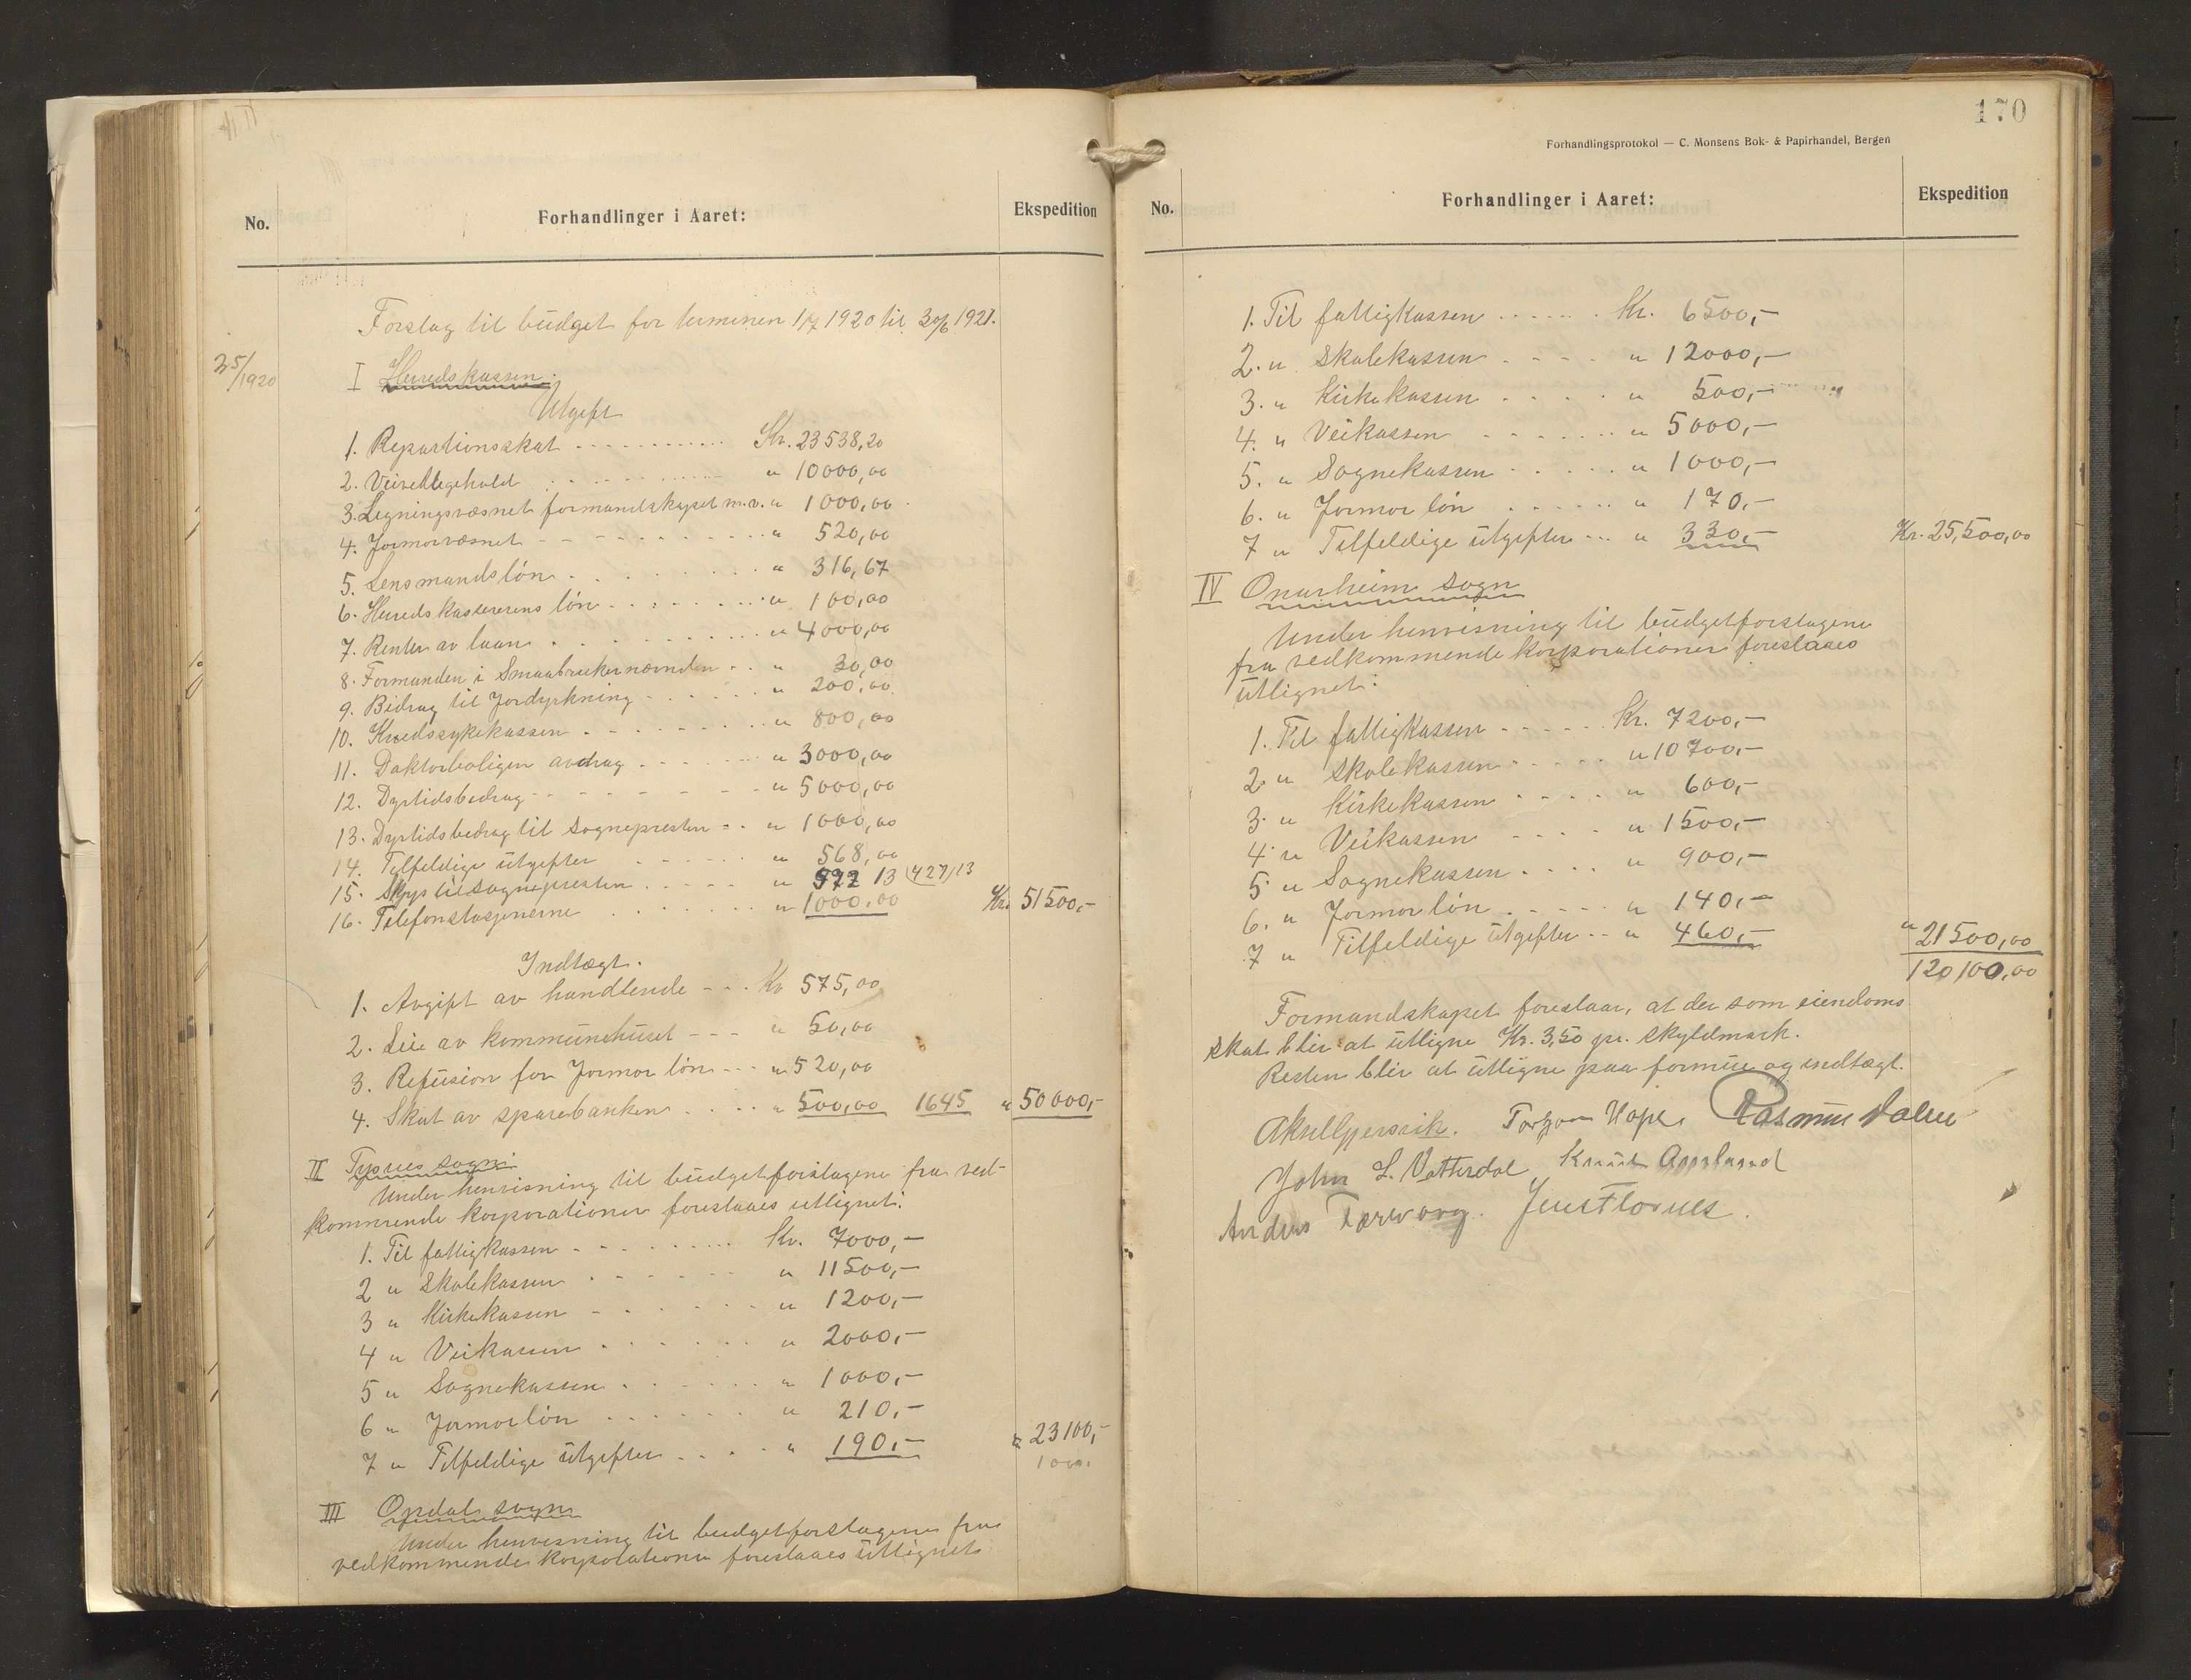 No.
Forhandlinger i Aaret:
Ekspedition
Forslag til budget for terminen 1/7 1920 til 30/6 1921.
3 5/1920
I Herredskassen.
Utgift
1. Repartionsskat Kr. 23538,20
2. Veivedlegehold " 10000,00
3. Ligningsvæsnet formandskapet m.v. " 1000,00
4. Jormorvæsnet " 520,00
5. Lensmandsløn " 316,67
6. Herredskassererens løn " 100,00
7. Renter av laan " 4000,00
8. Formanden i Smaabrukernævnden " 30,00
9. Bidrag til Jordyrkning " 200,00
10. Kredssykekassen " 800,00
11. Doktorboligen avdrag " 3000,00
12. Dyrtidsbidrag " 5000,00
13. Dyrtidsbidrag til Sognepresten " 1000,00
14. Tilfeldige utgifter " 568,00
15. Skyss til Sognepresten " 13 (427,13
16. Telefonstasjonerne " 1000,00 Kr. 51500,-
Indtægt.
1. Avgift av handlende Kr 575,00
2. Leie av kommunehuset " 50,00
3. Refusion for Jormor løn " 520,00
4. Skat av sparebanken " 500,00 1645 " 50000,-
II Tysnes sogn:
Under henvisning til budgetforslagene fra ved-
kommende korporationer foreslaaes utlignet:
1. Til fattigkassen Kr. 7000,-
2 " Skolekassen " 11500,-
3 " Kirkekassen " 1200,-
4 " Veikassen " 2000,-
5 " Sognekassen " 1000,-
6 " Jormorløn " 210,-
7 " Tilfeldige utgifter " 190,- " 23100,-
1000
III Opdal sogn
Under henvisning til budgetforslagene fra
vedkommende korporationer foreslaaes utlignet
170
Forhandlingsprotokol — C. Monsens Bok- & Papirhandel, Bergen
No.
Forhandlinger i Aaret:
Ekspedition
1. Til fattigkassen Kr. 6500,-
2. " Skolekassen " 12000,-
3. " Kirkekassen " 500,-
4. " Veikassen " 5000,-
5. " Sognekassen " 1000,-
6. " Jormor løn " 170,-
7 " Tilfeldige utgifter " 330,- Kr. 25,500,00
IV Onarheim sogn
Under henvisning til budgetforslagene
fra vedkommende korporationer foreslaaes
utlignet:
1. Til fattigkassen Kr. 7200,-
2 " Skolekassen " 10700,-
3 " Kirkekassen " 600,-
4 " Veikassen " 1500,-
5 " Sognekassen " 900,-
6. " Jormor løn " 140,-
7 " Tilfeldige utgifter " 460,- " 21500,00
120100,00
Formandskapet foreslaar, at der som eiendoms
skat blir at utligne Kr. 3,50 pr. skyldmark.
Resten blir at utligne paa formue og indtægt.
Aksel Gjersvik. Torgeir Hope. Rasmus Dalen
John L. Vatterdal Knut
Anders Tærvaag. Jens Flornes.